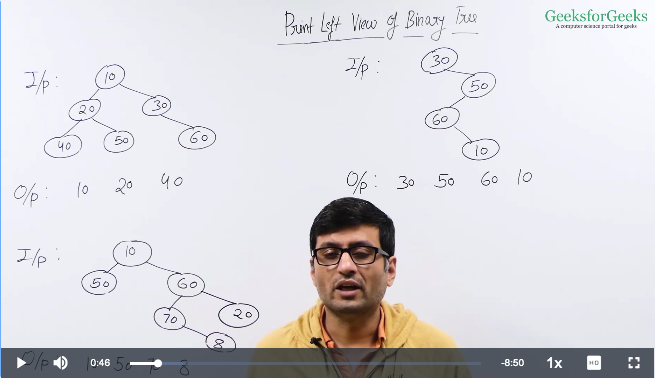 Print Left View of Binary Tree
GeeksforGeeks
A computer science portal for geeks
I/p:
10
20 30
40 50 60
O/p: 10 20 40
I/p:
30
50
60
10
O/p: 30 50 60 10
I/p:
10
50 60
70 20
8
O/p: 10 50 70 8
0:46
-8:50
1x
HD